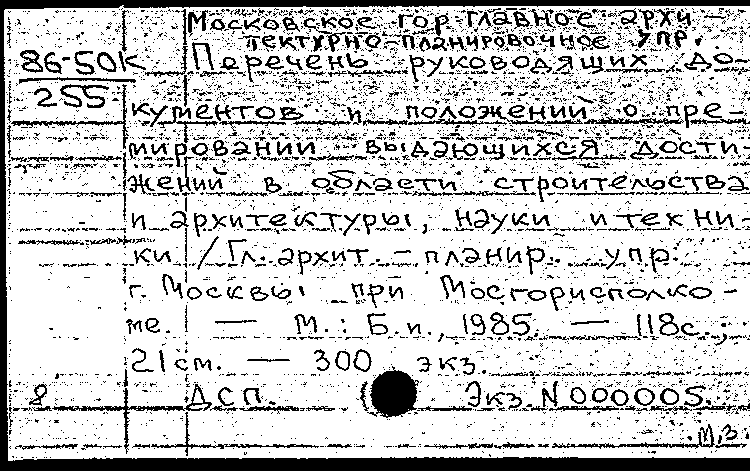 Московское гор. главное архи-
тектурно-планировочное упр.
86-50К
255
Перечень руководящих до-
кументов и положений о пре-
мировании выдающихся дости-
жений в области строительства
и архитектуры, науки и техни-
ки / Гл. архит.-планир. упр.
г. Москвы при Мосгорисполко-
ме. — М.: Б.и., 1985. — 118с.;
21см. — 300 экз.
8 ДСП. Экз. N 000005.
М,З